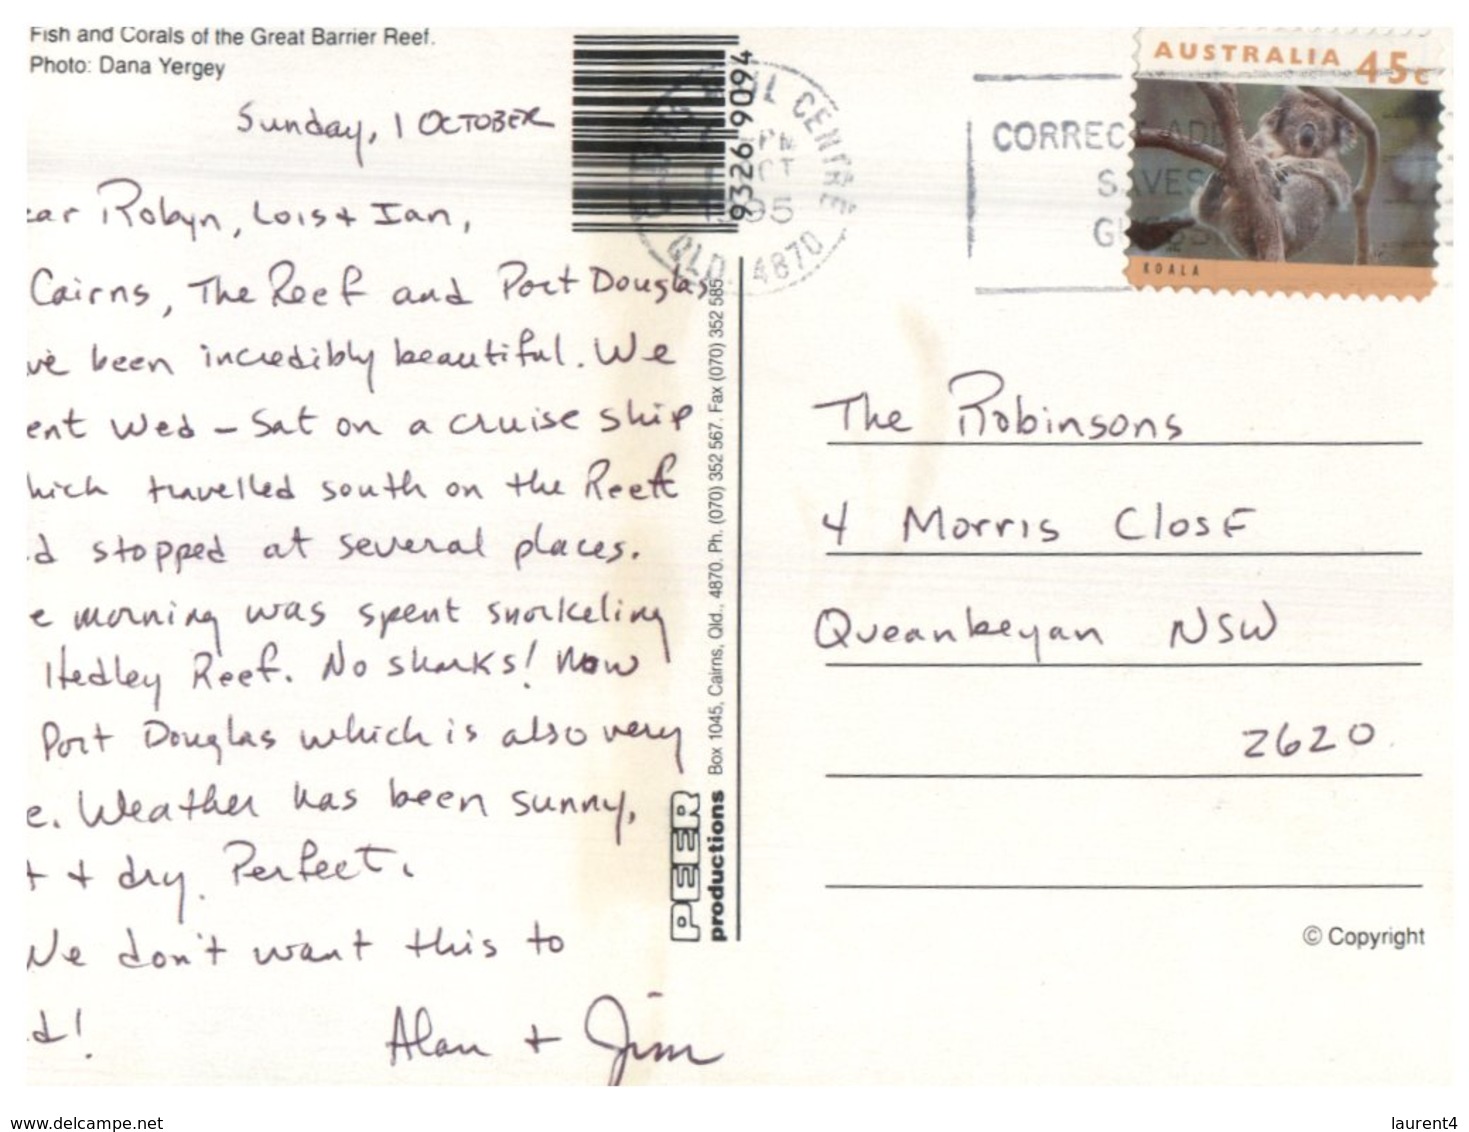 Fish and Corals of the Great Barrier Reef.
Photo: Dana Yergey
Sunday, 1 OCTOBER
ear Robyn, Lois + Ian,
Cairns, The Reef and Port Douglas
ve been incredibly beautiful. We
ent Wed - Sat on a cruise ship
hich travelled south on the Reef
d stopped at several places.
e morning was spent snorkeling
Hedley Reef. No sharks! Now
Port Douglas which is also very
e. Weather has been sunny,
t + dry. Perfect.
We don't want this to
d!
Alan + Jim
9326 9094
PEER
productions Box 1045, Cairns, Qld., 4870. Ph. (070) 352 567. Fax (070) 352 585
CENTRE
QLD. 4870
95
CORRECT
SAVES
AUSTRALIA 45c
KOALA
The Robinsons
4 Morris Close
Queanbeyan NSW
2620
© Copyright
www.delcampe.net
laurent4